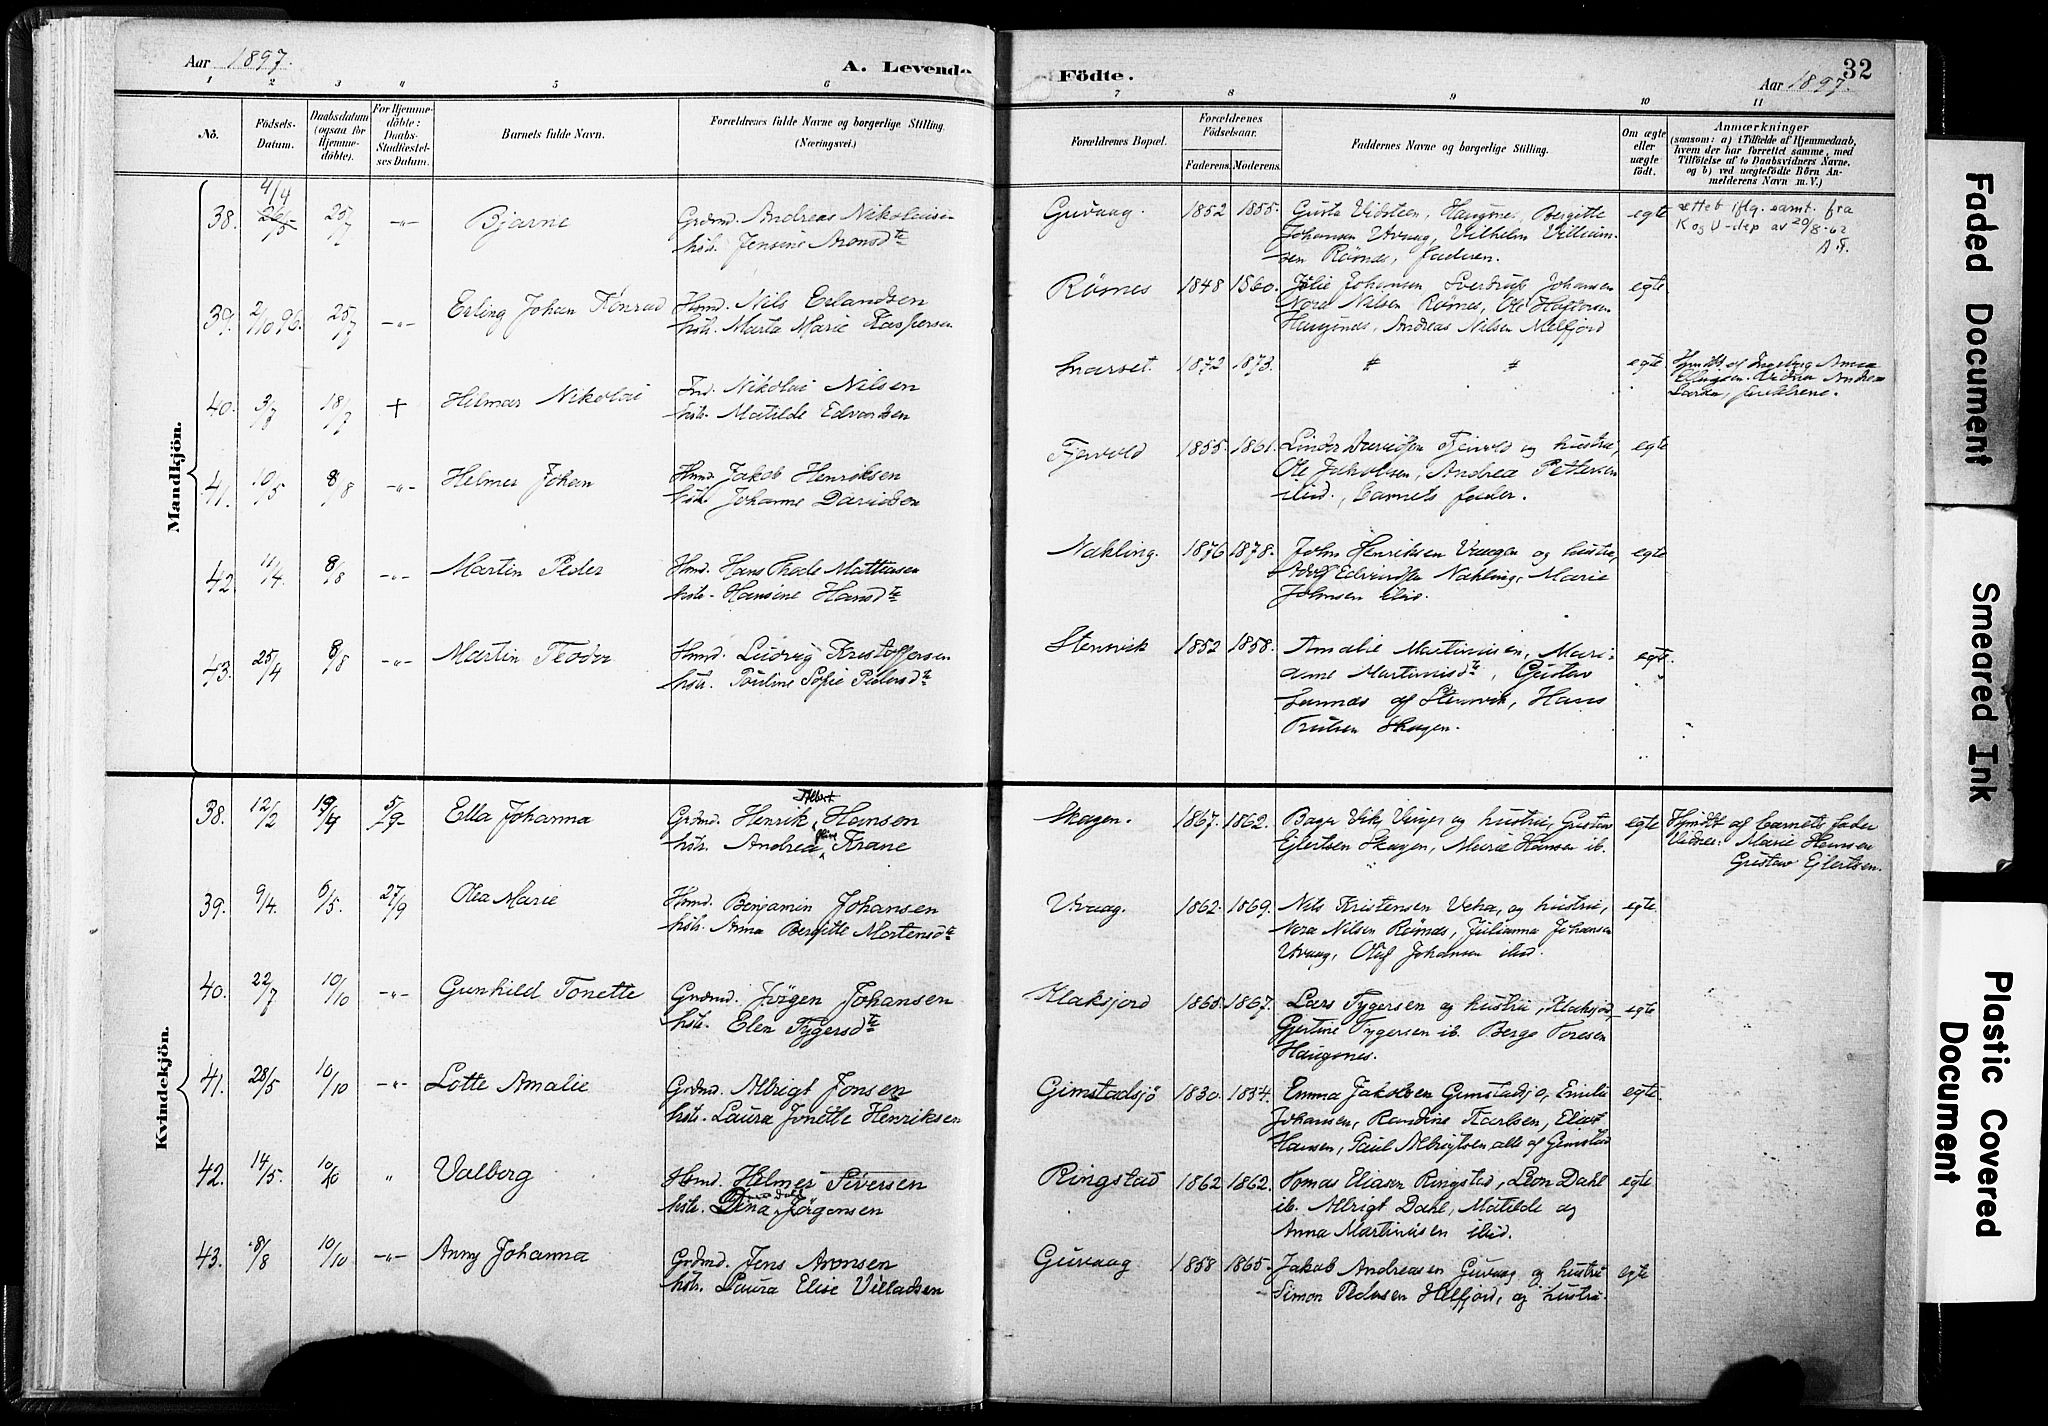 Aar 1897.
A. Levende Födte.
Aar 1897.
32
1 2 3 " 5 6 7 8 9 10 11
No.
Födsels-
Datum.
Daabsdatum
(ogsaa for
Hjemme-
döbte).
For Hjemme-
döbte:
Daabs-
Stadfæstel-
ses Datum.
Barnets fulde Navn.
Forældrenes fulde Navne og borgerlige Stilling.
(Næringsvei.)
Forældrenes Bopæl.
Forældrenes
Födselsaar.
Faderens. Moderens.
Faddernes Navne og borgerlige Stilling.
Om ægte
eller
uægte
födt.
Anmærkninger
(saasom: a) i Tilfælde af Hjemmedaab,
hvem der har forrettet samme, med
Tilföielse af to Daabsvidners Navne,
og b) ved uægtefödte Börn An-
melderens Navn m. V.)
Mandkjön.
38. 4/4 26/5 25/7 -"- Bjarne
Grdmd. Andreas Nikolaisen
hstr. Jensine Aronsdtr
Guvaag. 1852 1855.
Gusta Vibsteen, Haugnes, Bergitte
Johansen Uvaag, Vilhelm Villum-
sen Römnes, faderen.
egte
ættet iflg. samt. fra
K og U-dep av 20/8-62
A.F.
39. 2/10 96. 25/7 -"- Erling Johan Konrad
Hsmd. Nils Erlandsen
hstr. Marta Marie Kaspersen
Römes 1848 1860.
Julie Johansen, Sverdrup Johansen
Nora Nilsen Römes, Ole Hoffersen
Haugsnes, Andreas Nilsen Melfjord
egte
40. 3/7 18/7 + Hilmar Nikolai
Ind. Nikolai Nilsen
hstr. Matilde Edvardsen
Snarset. 1872 1873.
" "
egte
Hjmdbt af Ingeborg Anna
Ellingsen. Vidner Andrea
Larsen, forældrene.
41. 10/5 8/8 -"- Helmer Johan
Hsmd. Jakob Henriksen
hstr. Johanne Davidsen
Tjervold 1855. 1861.
Lindor Davidsen Tjervold og hustru,
Ole Jakobsen, Andrea Petersen
ibid., barnets fader.
egte
42. 11/4. 8/8 -"- Martin Peder
Hsmd. Hans Thode Mattisen
hstr. Hansine Hansdtr
Nakling. 1876 1878.
John Henriksen Vaagen og hustru,
Adolf Edvardsen Nakling, Marie
Johnsen ibid.
egte
43. 25/4 8/8 -"- Martin Teodor
Hsmd. Ludvig Kristoffersen
hstr. Pauline Sofie Pedersdtr
Stensvik 1852 1858.
Amalie Martinusen, Mari-
anne Martinusdtr, Gustav
Lunnas af Stensvik, Hans
Trulsen Skagen.
egte.
Kvindekjön.
38. 12/2 19/4 5/9 Ella Johanna
Grdmd. Henrik Albert Hansen
hstr. Andrea Krane
Skagen. 1867. 1862.
Bager Vik, Vinjes og hustru, Gustav
Ejlertsen Skagen, Marie Hansen ib.
egte
Hjmdbt af barnets fader
Vidner: Marie Hansen
Gustav Ejlertsen.
39. 9/4. 6/5. 27/9 Olea Marie
Hsmd. Benjamin Johansen
hstr. Anna Bergitte Mortensdtr
Uvaag. 1862. 1869.
Nils Kristensen Veha, og hustru,
Nora Nilsen Römnes, Julianna Johansen
Uvaag, Oluf Johansen ibid.
egte.
40. 22/7 10/10 -"- Gunhild Tonette
Grdmd. Jörgen Johansen
hstr. Elen Tygersdtr
Klaksjord 1865. 1867.
Lars Tygersen og hustru, Klaksjord,
Gjertine Tygersen ib. Berge Toresen
Haugsnes.
egte
41. 28/5 10/10 -"- Lotte Amalie
Grdmd. Albrigt Jonsen
hstr. Laura Jonette Henriksen
Gimstadsjö 1830. 1854.
Emma Jakobsen Gimstadsjö, Emilie
Johansen, Randine Karlsen, Eliert
Hansen, Paul Albrigtsen alle af Gimstad
egte.
42. 14/5. 10/10 " Valborg
Hsmd. Helmer Siversen
hstr. Dina Jörgensen
Ringstad 1862 1862.
Tomas Eliasen Ringstad, Leon Dahl
ib. Albrigt Dahl, Matilde og
Anna Martinusen ibid.
egte
43. 8/8 10/10 -"- Anny Johanna
Grdmd. Jens Aronsen
hstr. Laura Elise Villadsen
Guvaag 1858 1865.
Jakob Andreasen Guvaag og hustru
Simon Pedersen Helfjord, og hustru.
egte
Faded Document
Smeared Ink
Plastic Covered
Document